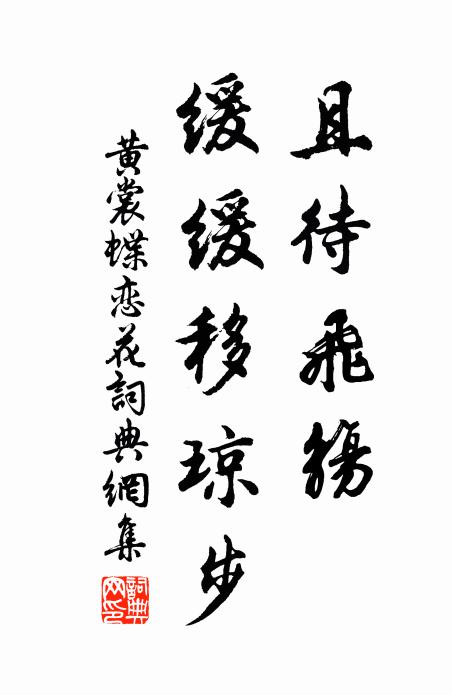 且待飛觴
緩緩移琼步
黄裳蝶恋花詞典網集
詞典網印